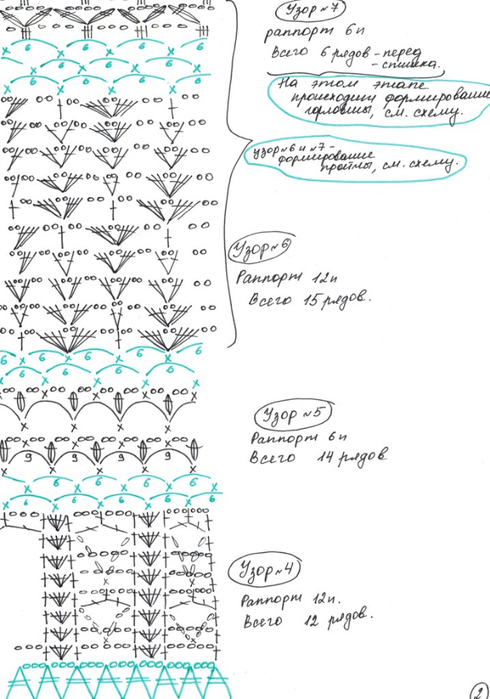 Узор №7
раппорт 6п
Всего 6 рядов - перед
- спинка.
На этом этапе
происходит формирование
горловины, см. схему.
Узор №6 и №7 -
формирование
проймы, см. схему.
Узор №6
Раппорт 12п
Всего 15 рядов.
6 6 6 6
6 6 6
Узор №5
Раппорт 6п
Всего 14 рядов
9 9 9 9
6 6 6 6
6 6 6 6
Узор №4
Раппорт 12п.
Всего 12 рядов.
2